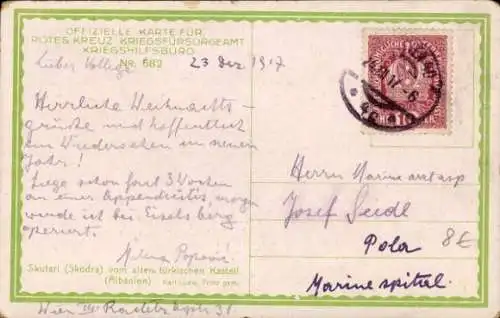 OFFIZIELLE KARTE FÜR
ROTES KREUZ, KRIEGSFÜRSORGEAMT
KRIEGSHILFSBÜRO
Nr. 682
23 Dez 1917
Lieber Kollege
Herrliche Weihnachts-
grüsse und hoffentlich
ein Wiedersehen im neuen
Jahr!
Liege schon fast 3 Wochen
an einer Appendicitis, morgen
werde ich bei Eiselsberg
operiert.
Milena Popović
Skutari (Skodra) vom alten türkischen Kastell
(Albanien)
Karl Ludw. Prinz gem.
Wien III Radetzkystr 31
Herrn Marinearztasp
Josef Seidl
Pola
Marinespital
8€